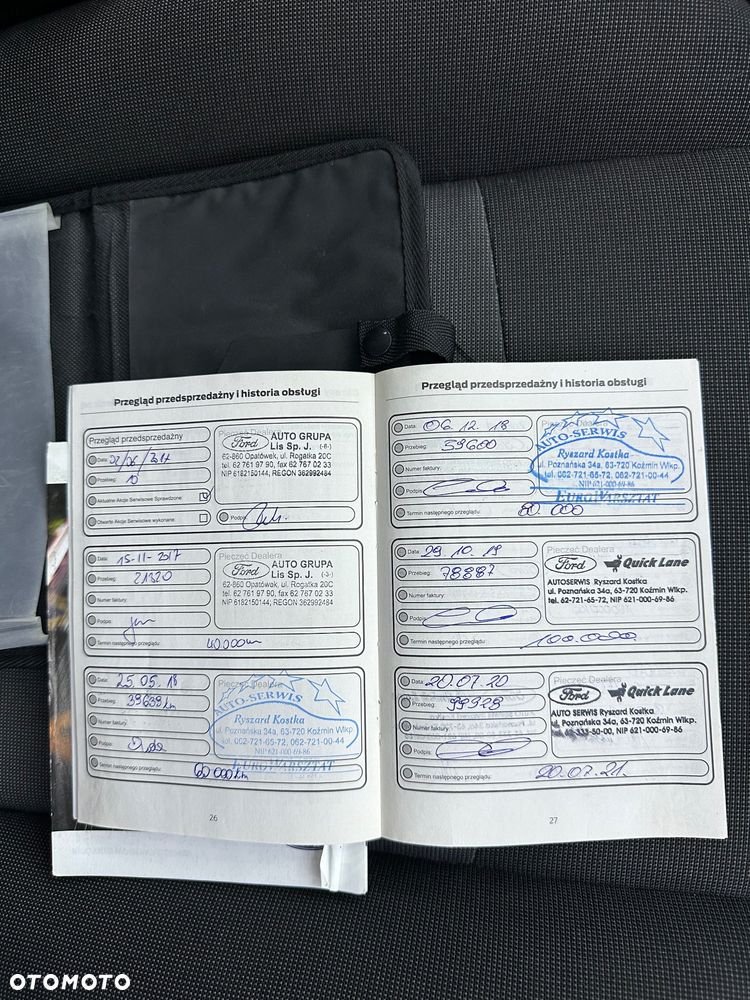 Przegląd przedsprzedażny i historia obsługi
Przegląd przedsprzedażny
Data:
Przebieg: 10
Aktualne Akcje Serwisowe Sprawdzone:
Otwarte Akcje Serwisowe wykonane:
Pieczęć Dealera
Ford
AUTO GRUPA
Lis Sp. J. (-6-)
62-860 Opatówek, ul. Rogatka 20C
tel. 62 761 97 90, fax 62 767 02 33
NIP 6182150144; REGON 362992484
Podpis:
Data: 15-11-2017
Przebieg: 21320
Numer faktury:
Podpis:
Termin następnego przeglądu: 40.000km
Pieczęć Dealera
Ford
AUTO GRUPA
Lis Sp. J. (-3-)
62-860 Opatówek, ul. Rogatka 20C
tel. 62 761 97 90, fax 62 767 02 33
NIP 6182150144; REGON 362992484
Data: 25.05.18
Przebieg: 39639 km
Numer faktury:
Podpis:
Termin następnego przeglądu: 60 000 km
Pieczęć Dealera
AUTO-SERWIS
Ryszard Kostka
ul. Poznańska 34a, 63-720 Koźmin Wlkp.
tel. 062-721-65-72, 062-721-00-44
NIP 621-000-69-86
EUROWARSZTAT
26
Przegląd przedsprzedażny i historia obsługi
Data: 06.12.18
Przebieg: 59600
Numer faktury:
Podpis:
Termin następnego przeglądu: 80.000
Pieczęć Dealera
AUTO-SERWIS
Ryszard Kostka
ul. Poznańska 34a, 63-720 Koźmin Wlkp.
tel. 062-721-65-72, 062-721-00-44
NIP 621-000-69-86
EUROWARSZTAT
Data: 29.10.19
Przebieg: 78887
Numer faktury:
Podpis:
Termin następnego przeglądu: 100.000
Pieczęć Dealera
Ford Quick Lane
AUTOSERWIS Ryszard Kostka
ul. Poznańska 34a, 63-720 Koźmin Wlkp.
tel. 62-721-65-72, NIP 621-000-69-86
Data: 20.07.20
Przebieg: 99328
Numer faktury:
Podpis:
Termin następnego przeglądu: 20.07.21.
Pieczęć Dealera
Ford Quick Lane
AUTO SERWIS Ryszard Kostka
ul. Poznańska 34a, 63-720 Koźmin Wlkp.
62-333-50-00, NIP 621-000-69-86
27
OTOMOTO